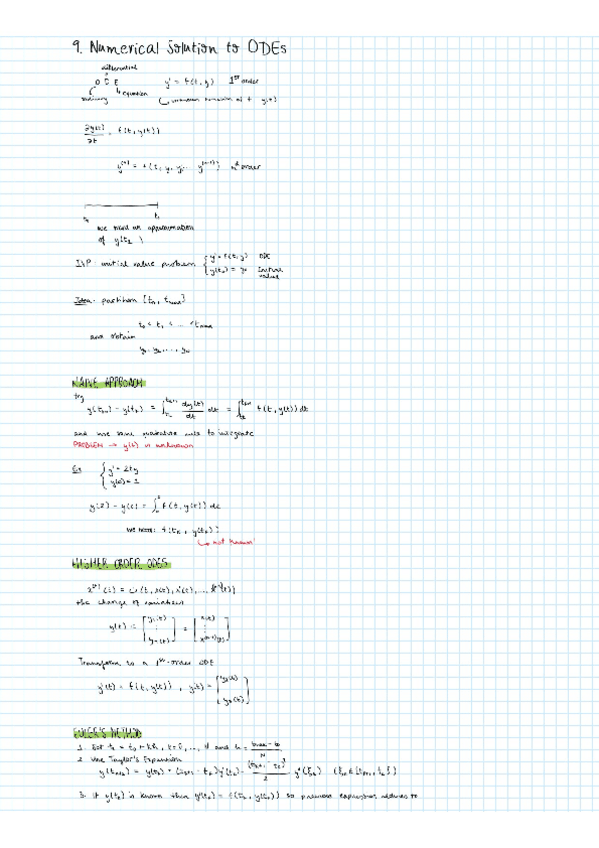 9. Numerical Solution to ODEs
differential
O D E y' = f(t, y) 1st order
ordinary equation unknown function of t y(t)
∂y(t)/∂t = f(t, y(t))
y^(n) = f(t, y, y', ... y^(n-1)) nth order
we need an approximation
of y(t
IVP: initial value problem { y' = f(t, y) ODE
y(t₀) = y₀ Initial value
Idea: partition [t₀, tmax]
t₀ < t₁ < ... < tmax
and obtain
NAIVE APPROACH
try
y(tₖ₊₁) - y(tₖ) = ∫ dy(t)/dt dt = ∫ f(t, y(t)) dt
and use some quadrature rule to integrate
PROBLEM → y(t) is unknown
Ex { y' = 2ty
y(0) = 1
∫ f(t, y(t)) dt
we need: f(tₖ, y(tₖ))
↳ not known!
HIGHER ORDER ODES
the change of variables
y(t) = [y₁(t) ⋮ yₙ(t)] = [x(t) ⋮
Transform to a 1st-order ODE
y'(t) = f(t, y(t)), y(t) = [y₁(t) ⋮ yₙ(t)]
EULER'S METHOD
1. Set tₖ = t₀ + kh, k = 0, ..., N and h = (tmax - t₀)/N
2. Use Taylor's Expansion
y(tₖ₊₁) = y(tₖ) + (tₖ₊₁ - tₖ) y'(tₖ)
3. If y(tₖ) is known then y'(tₖ) = f(tₖ, y(tₖ)) so previous expression reduces to